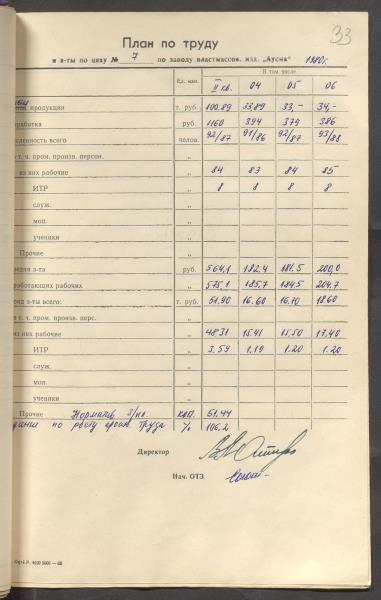 33
План по труду
и з-ты по цеху № 7 по заводу пластмассов. изд. „Аусма" 1980г.
Ед. изм. II кв. В том числе
04 05 06
продукции т. руб. 100.89 33,89 33,- 34,-
работка руб. 1160 394 379 386
сленность всего челов. 92/87 91/86 92/87 93/88
т. ч. пром. произв. персон. „
из них рабочие „ 84 83 84 85
ИТР „ 8 8 8 8
служ. „
моп. „
ученики „
Прочие „
едняя з-та руб. 564,1 182.4 181.5 200,0
работающих рабочих „ 575,1 185,7 184,5 204,7
онд з-ты всего: т. руб. 51.90 16.60 16.70 18.60
в т. ч. пром. произв. перс. „
из них рабочие „ 48.31 15.41 15,50 17,40
ИТР „ 3.59 1.19 1.20 1.20
служ. „
моп. „
ученики „
Прочие Норматив з/пл. коп. 51.44
дание по росту произ. труда % 106,2
Директор
Нач. ОТЗ